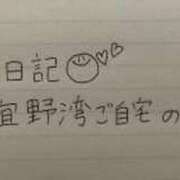 日記
宜野湾ご自宅の